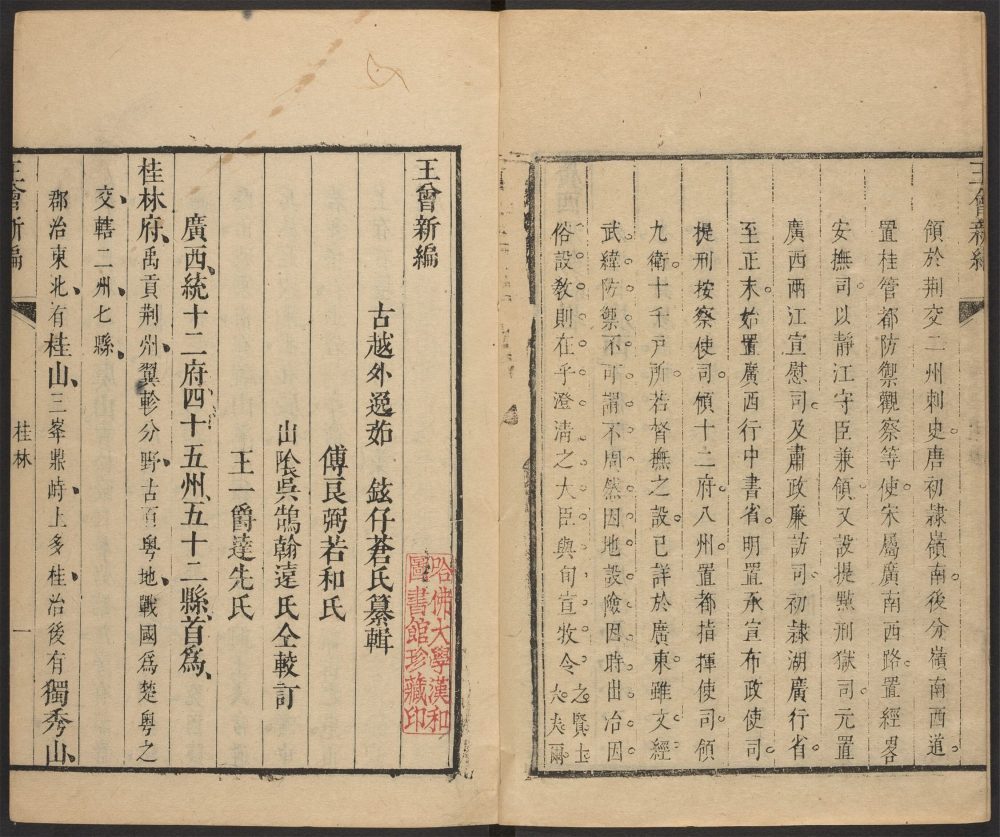 領於荆交二州刺史唐初隷嶺南後分嶺南西道
置桂管都防禦觀察等使宋屬廣南西路置經畧
安撫司以靜江守臣兼領又設提㸃刑獄司元置
廣西兩江宣慰司及肅政廉訪司初隷湖廣行省
至正末始置廣西行中書省明置承宣布政使司
提刑按察使司領十二府八州置都指揮使司領
九衛十千戸所若督撫之設已詳於廣東雖文經
武緯防禦不可謂不周然因地設險因時出治因
俗設敎則在乎澄清之大臣與旬宣牧令之賢士
大夫爾
王會新編
古越外逸茹 鉉仔蒼氏纂輯
傅良弼若和氏
吳鵠翰遠氏仝較訂
王一爵達先氏
哈佛大學漢和
圖書館珍藏印
廣西統十二府四十五州五十二縣首爲
桂林府禹貢荆州翼軫分野古百粵地戰國爲楚粵之
交轄二州七縣
郡治東北有桂山三峯鼎峙上多桂治後有獨秀山
王會新編
桂林
一